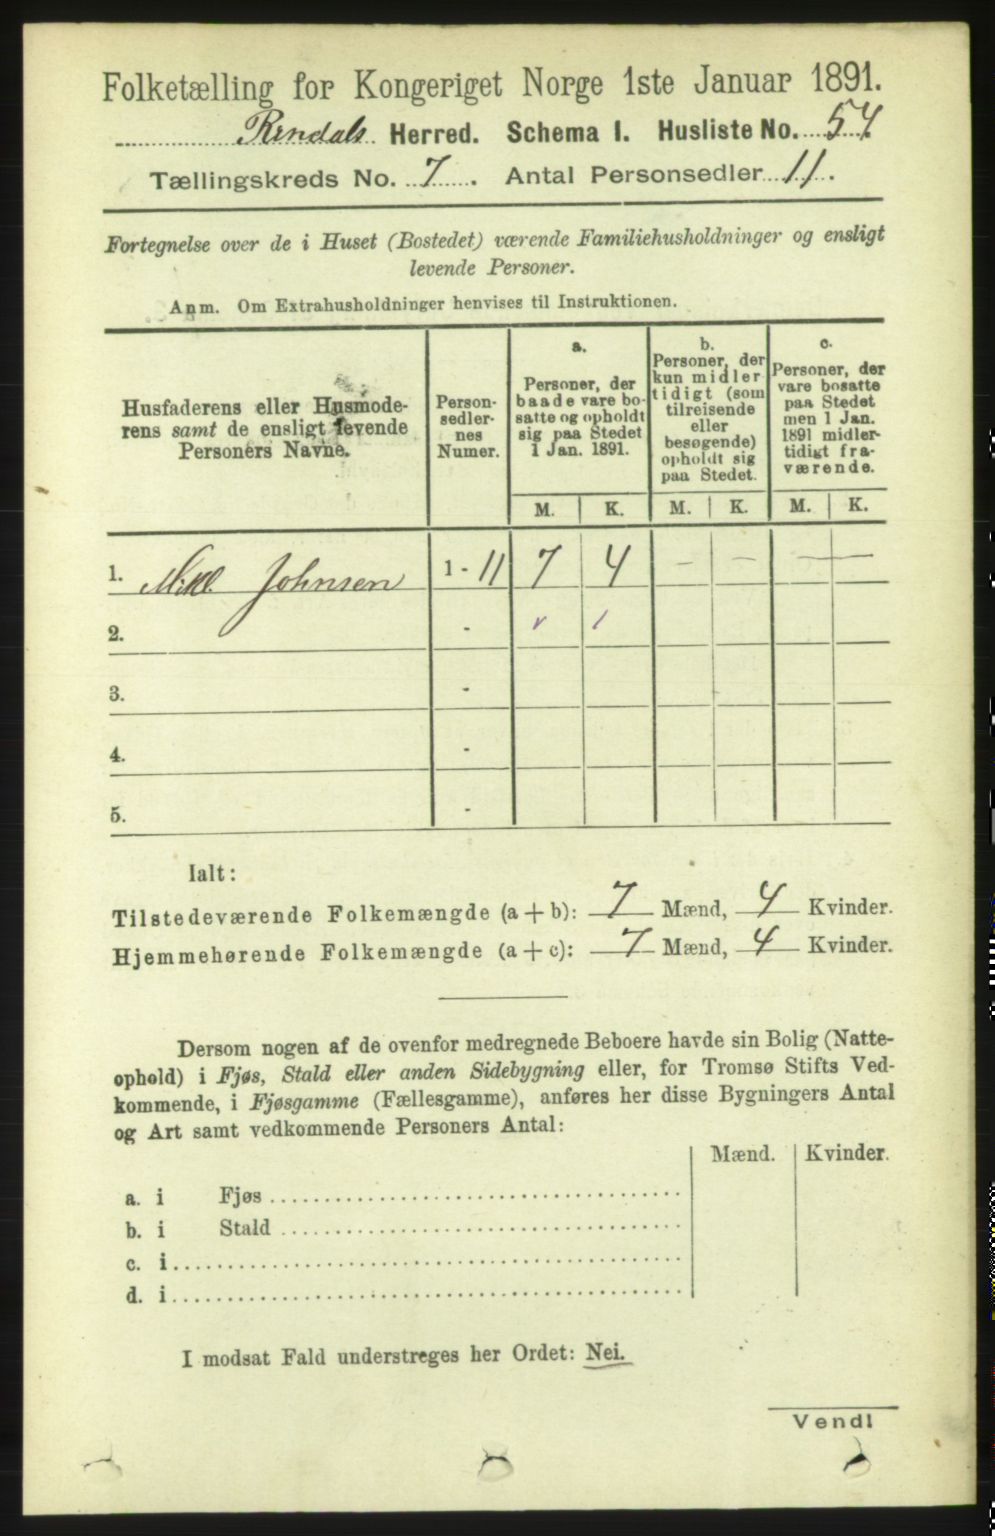 Folketælling for Kongeriget Norge 1ste Januar 1891.
Rendals Herred. Schema I. Husliste No. 54.
Tællingskreds No. 7. Antal Personsedler 11.
Fortegnelse over de i Huset (Bostedet) værende Familiehusholdninger og ensligt
levende Personer.
Anm. Om Extrahusholdninger henvises til Instruktionen.
Husfaderens eller Husmode-
rens samt de ensligt levende
Personers Navne.
Person-
sedler-
nes
Numer.
a.
Personer, der
baade vare bo-
satte og opholdt
sig paa Stedet
1 Jan. 1891.
b.
Personer, der
kun midler
tidigt (som
tilreisende
eller
besøgende)
opholdt sig
paa Stedet.
c.
Personer, der
vare bosatte
paa Stedet
men 1 Jan.
1891 midler-
tidigt fra-
værende.
M. K. M. K. M. K.
1. Mikl. Johnsen 1 - 11 7 4 - - - -
2. -
3. -
4. -
5. -
Ialt:
Tilstedeværende Folkemængde (a + b): 7 Mænd, 4 Kvinder.
Hjemmehørende Folkemængde (a + c): 7 Mænd, 4 Kvinder.
Dersom nogen af de ovenfor medregnede Beboere havde sin Bolig (Natte-
ophold) i Fjøs, Stald eller anden Sidebygning eller, for Tromsø Stifts Ved-
kommende, i Fjøsgamme (Fællesgamme), anføres her disse Bygningers Antal
og Art samt vedkommende Personers Antal:
Mænd. Kvinder.
a. i Fjøs
b. i Stald
c. i
d. i
I modsat Fald understreges her Ordet: Nei.
Vend!